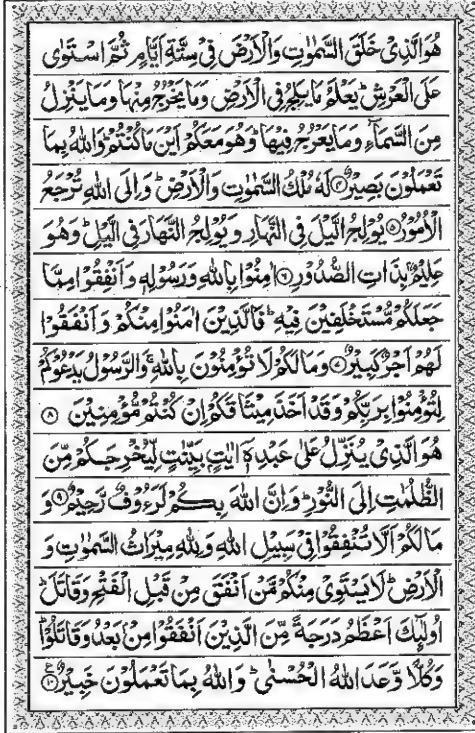 هُوَ الَّذِیْ خَلَقَ السَّمٰوٰتِ وَالْاَرْضَ فِیْ سِتَّةِ اَیَّامٍ ثُمَّ اسْتَوٰی
عَلَی الْعَرْشِ ؕ یَعْلَمُ مَا یَلِجُ فِی الْاَرْضِ وَمَا یَخْرُجُ مِنْهَا وَمَا یَنْزِلُ
مِنَ السَّمَآءِ وَمَا یَعْرُجُ فِیْهَا ؕ وَهُوَ مَعَكُمْ اَیْنَ مَا كُنْتُمْ ؕ وَاللّٰهُ بِمَا
تَعْمَلُوْنَ بَصِیْرٌ ۟﴿۴﴾ لَهٗ مُلْكُ السَّمٰوٰتِ وَالْاَرْضِ ؕ وَاِلَی اللّٰهِ تُرْجَعُ
الْاُمُوْرُ ﴿۵﴾ یُوْلِجُ الَّیْلَ فِی النَّهَارِ وَیُوْلِجُ النَّهَارَ فِی الَّیْلِ ؕ وَهُوَ
عَلِیْمٌۢ بِذَاتِ الصُّدُوْرِ ﴿۶﴾ اٰمِنُوْا بِاللّٰهِ وَرَسُوْلِهٖ وَاَنْفِقُوْا مِمَّا
جَعَلَكُمْ مُّسْتَخْلَفِیْنَ فِیْهِ ؕ فَالَّذِیْنَ اٰمَنُوْا مِنْكُمْ وَاَنْفَقُوْا
لَهُمْ اَجْرٌ كَبِیْرٌ ﴿۷﴾ وَمَا لَكُمْ لَا تُؤْمِنُوْنَ بِاللّٰهِ ۚ وَالرَّسُوْلُ یَدْعُوْكُمْ
لِتُؤْمِنُوْا بِرَبِّكُمْ وَقَدْ اَخَذَ مِیْثَاقَكُمْ اِنْ كُنْتُمْ مُّؤْمِنِیْنَ ﴿۸﴾
هُوَ الَّذِیْ یُنَزِّلُ عَلٰی عَبْدِهٖۤ اٰیٰتٍۭ بَیِّنٰتٍ لِّیُخْرِجَكُمْ مِّنَ
الظُّلُمٰتِ اِلَی النُّوْرِ ؕ وَاِنَّ اللّٰهَ بِكُمْ لَرَءُوْفٌ رَّحِیْمٌ ﴿۹﴾ وَ
مَا لَكُمْ اَلَّا تُنْفِقُوْا فِیْ سَبِیْلِ اللّٰهِ وَلِلّٰهِ مِیْرَاثُ السَّمٰوٰتِ وَ
الْاَرْضِ ؕ لَا یَسْتَوِیْ مِنْكُمْ مَّنْ اَنْفَقَ مِنْ قَبْلِ الْفَتْحِ وَقَاتَلَ ؕ
اُولٰٓئِكَ اَعْظَمُ دَرَجَةً مِّنَ الَّذِیْنَ اَنْفَقُوْا مِنْۢ بَعْدُ وَقَاتَلُوْا ؕ
وَكُلًّا وَّعَدَ اللّٰهُ الْحُسْنٰی ؕ وَاللّٰهُ بِمَا تَعْمَلُوْنَ خَبِیْرٌ ﴿۱۰﴾